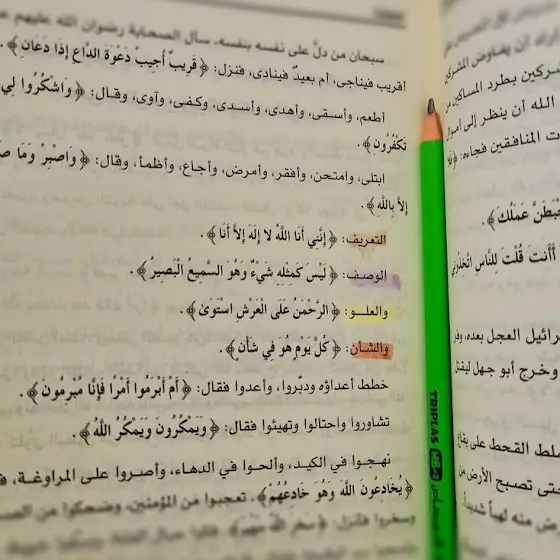 سبحان من دلَّ على نفسه بنفسه، سأل الصحابة رضوان الله عليهم
أقريب فيناجى، أم بعيدٌ فينادى، فنزل: ﴿قَرِيبٌ أُجِيبُ دَعْوَةَ الدَّاعِ إِذَا دَعَانِ﴾.
أطعم، وأسقى، وأهدى، وأسدى، وكفى، وآوى، وقال: ﴿وَاشْكُرُوا لِي
تَكْفُرُونِ﴾.
ابتلى، وامتحن، وأفقر، وأمرض، وأجاع، وأظمأ، وقال: ﴿وَاصْبِرْ وَمَا
إِلاَّ بِاللهِ﴾.
التعريف: ﴿إِنَّنِي أَنَا اللَّهُ لا إِلَهَ إِلاَّ أَنَا﴾.
الوصف: ﴿لَيْسَ كَمِثْلِهِ شَيْءٌ وَهُوَ السَّمِيعُ الْبَصِيرُ﴾.
والعلــو: ﴿الرَّحْمَنُ عَلَى الْعَرْشِ اسْتَوَىٰ﴾.
والشأن: ﴿كُلَّ يَوْمٍ هُوَ فِي شَأْنٍ﴾.
خطط أعداؤه ودبّروا، وأعدوا فقال: ﴿أَمْ أَبْرَمُوا أَمْرًا فَإِنَّا مُبْرِمُونَ﴾.
تشاوروا واحتالوا وتهيئوا فقال: ﴿وَيَمْكُرُونَ وَيَمْكُرُ اللَّهُ﴾.
نهجـوا في الكيـد، وألحـوا في الدهـاء، وأصـروا علـى المراوغـة،
﴿يُخَادِعُونَ اللَّهَ وَهُوَ خَادِعُهُمْ﴾. تعجبوا من المؤمنين، وضحكوا من
وسخروا فنزل: ﴿سَخِرَ اللَّهُ مِنْهُمْ﴾.
TRIPLAS HB=2
أن يفاوض المشركين
بطرد المساكين
الله أن ينظر إلى
المنافقين فجاءه:
عَمَلُكَ﴾.
أَأَنتَ قُلْتَ لِلنَّاسِ اتَّخِذُونِي
العجل بعده،
وخرج أبو جهل ليقتل
القحط على
حتى تصبح الأرض
منه لهباً شديداً